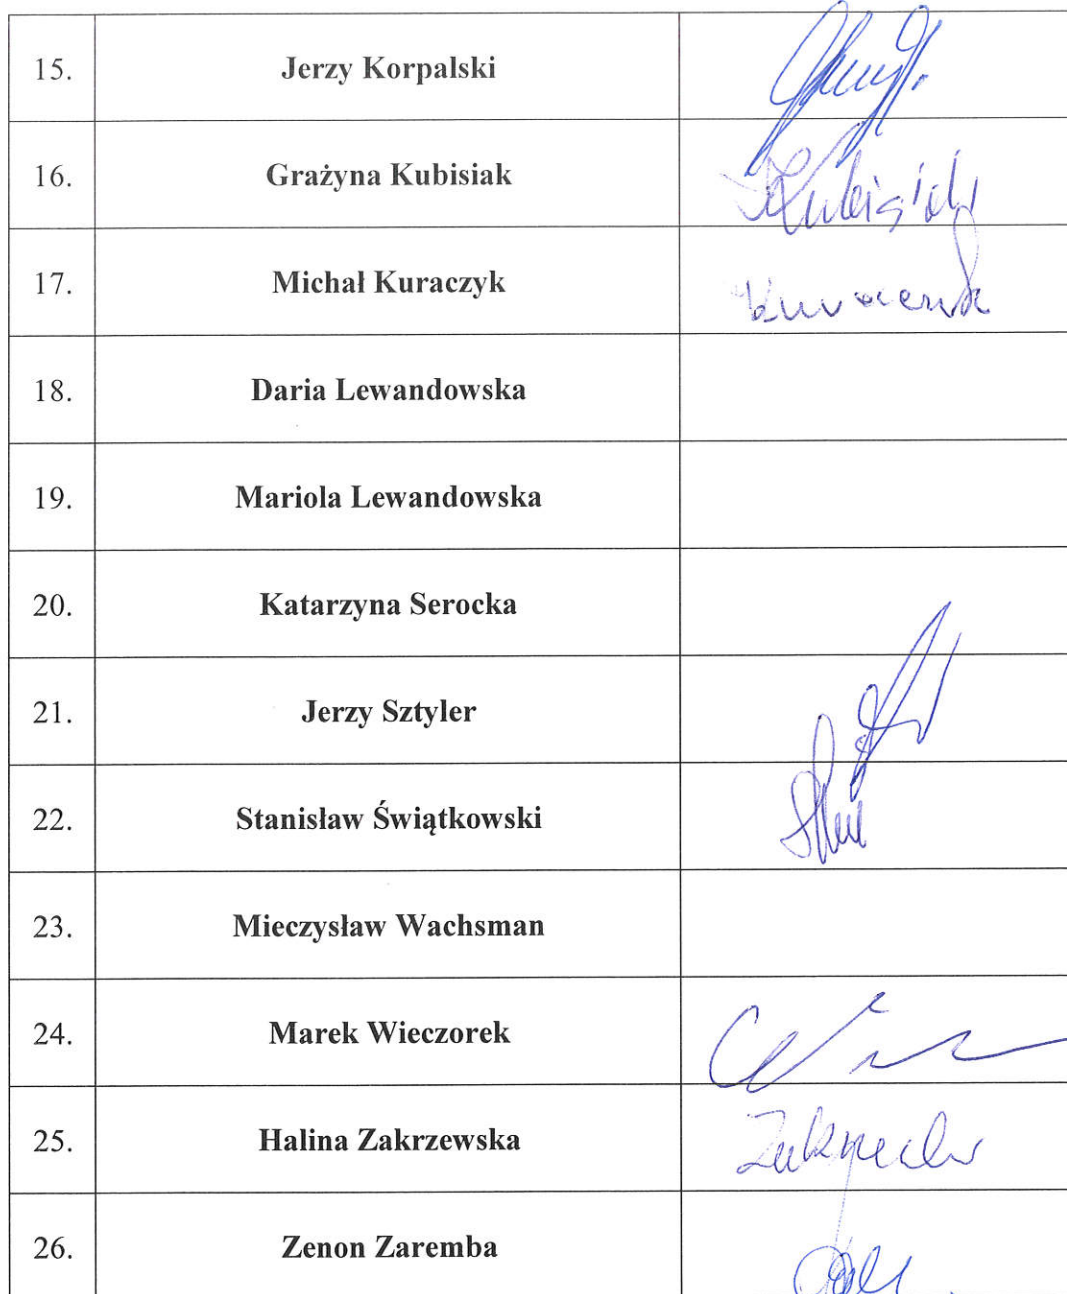 15. Jerzy Korpalski
16. Grażyna Kubisiak Kubisiak
17. Michał Kuraczyk
18. Daria Lewandowska
19. Mariola Lewandowska
20. Katarzyna Serocka
21. Jerzy Sztyler
22. Stanisław Świątkowski
23. Mieczysław Wachsman
24. Marek Wieczorek
25. Halina Zakrzewska
26. Zenon Zaremba